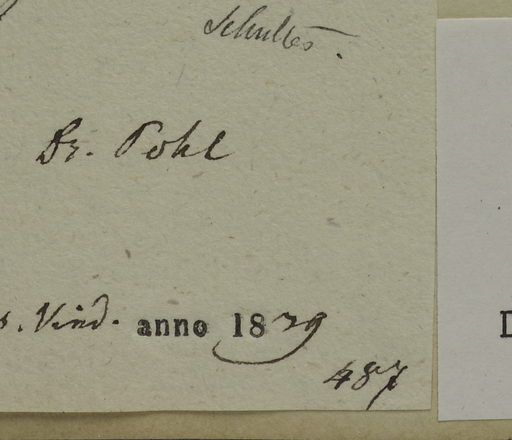 Schultes.
Dr. Pohl
s. Vind. anno 1839
487
D